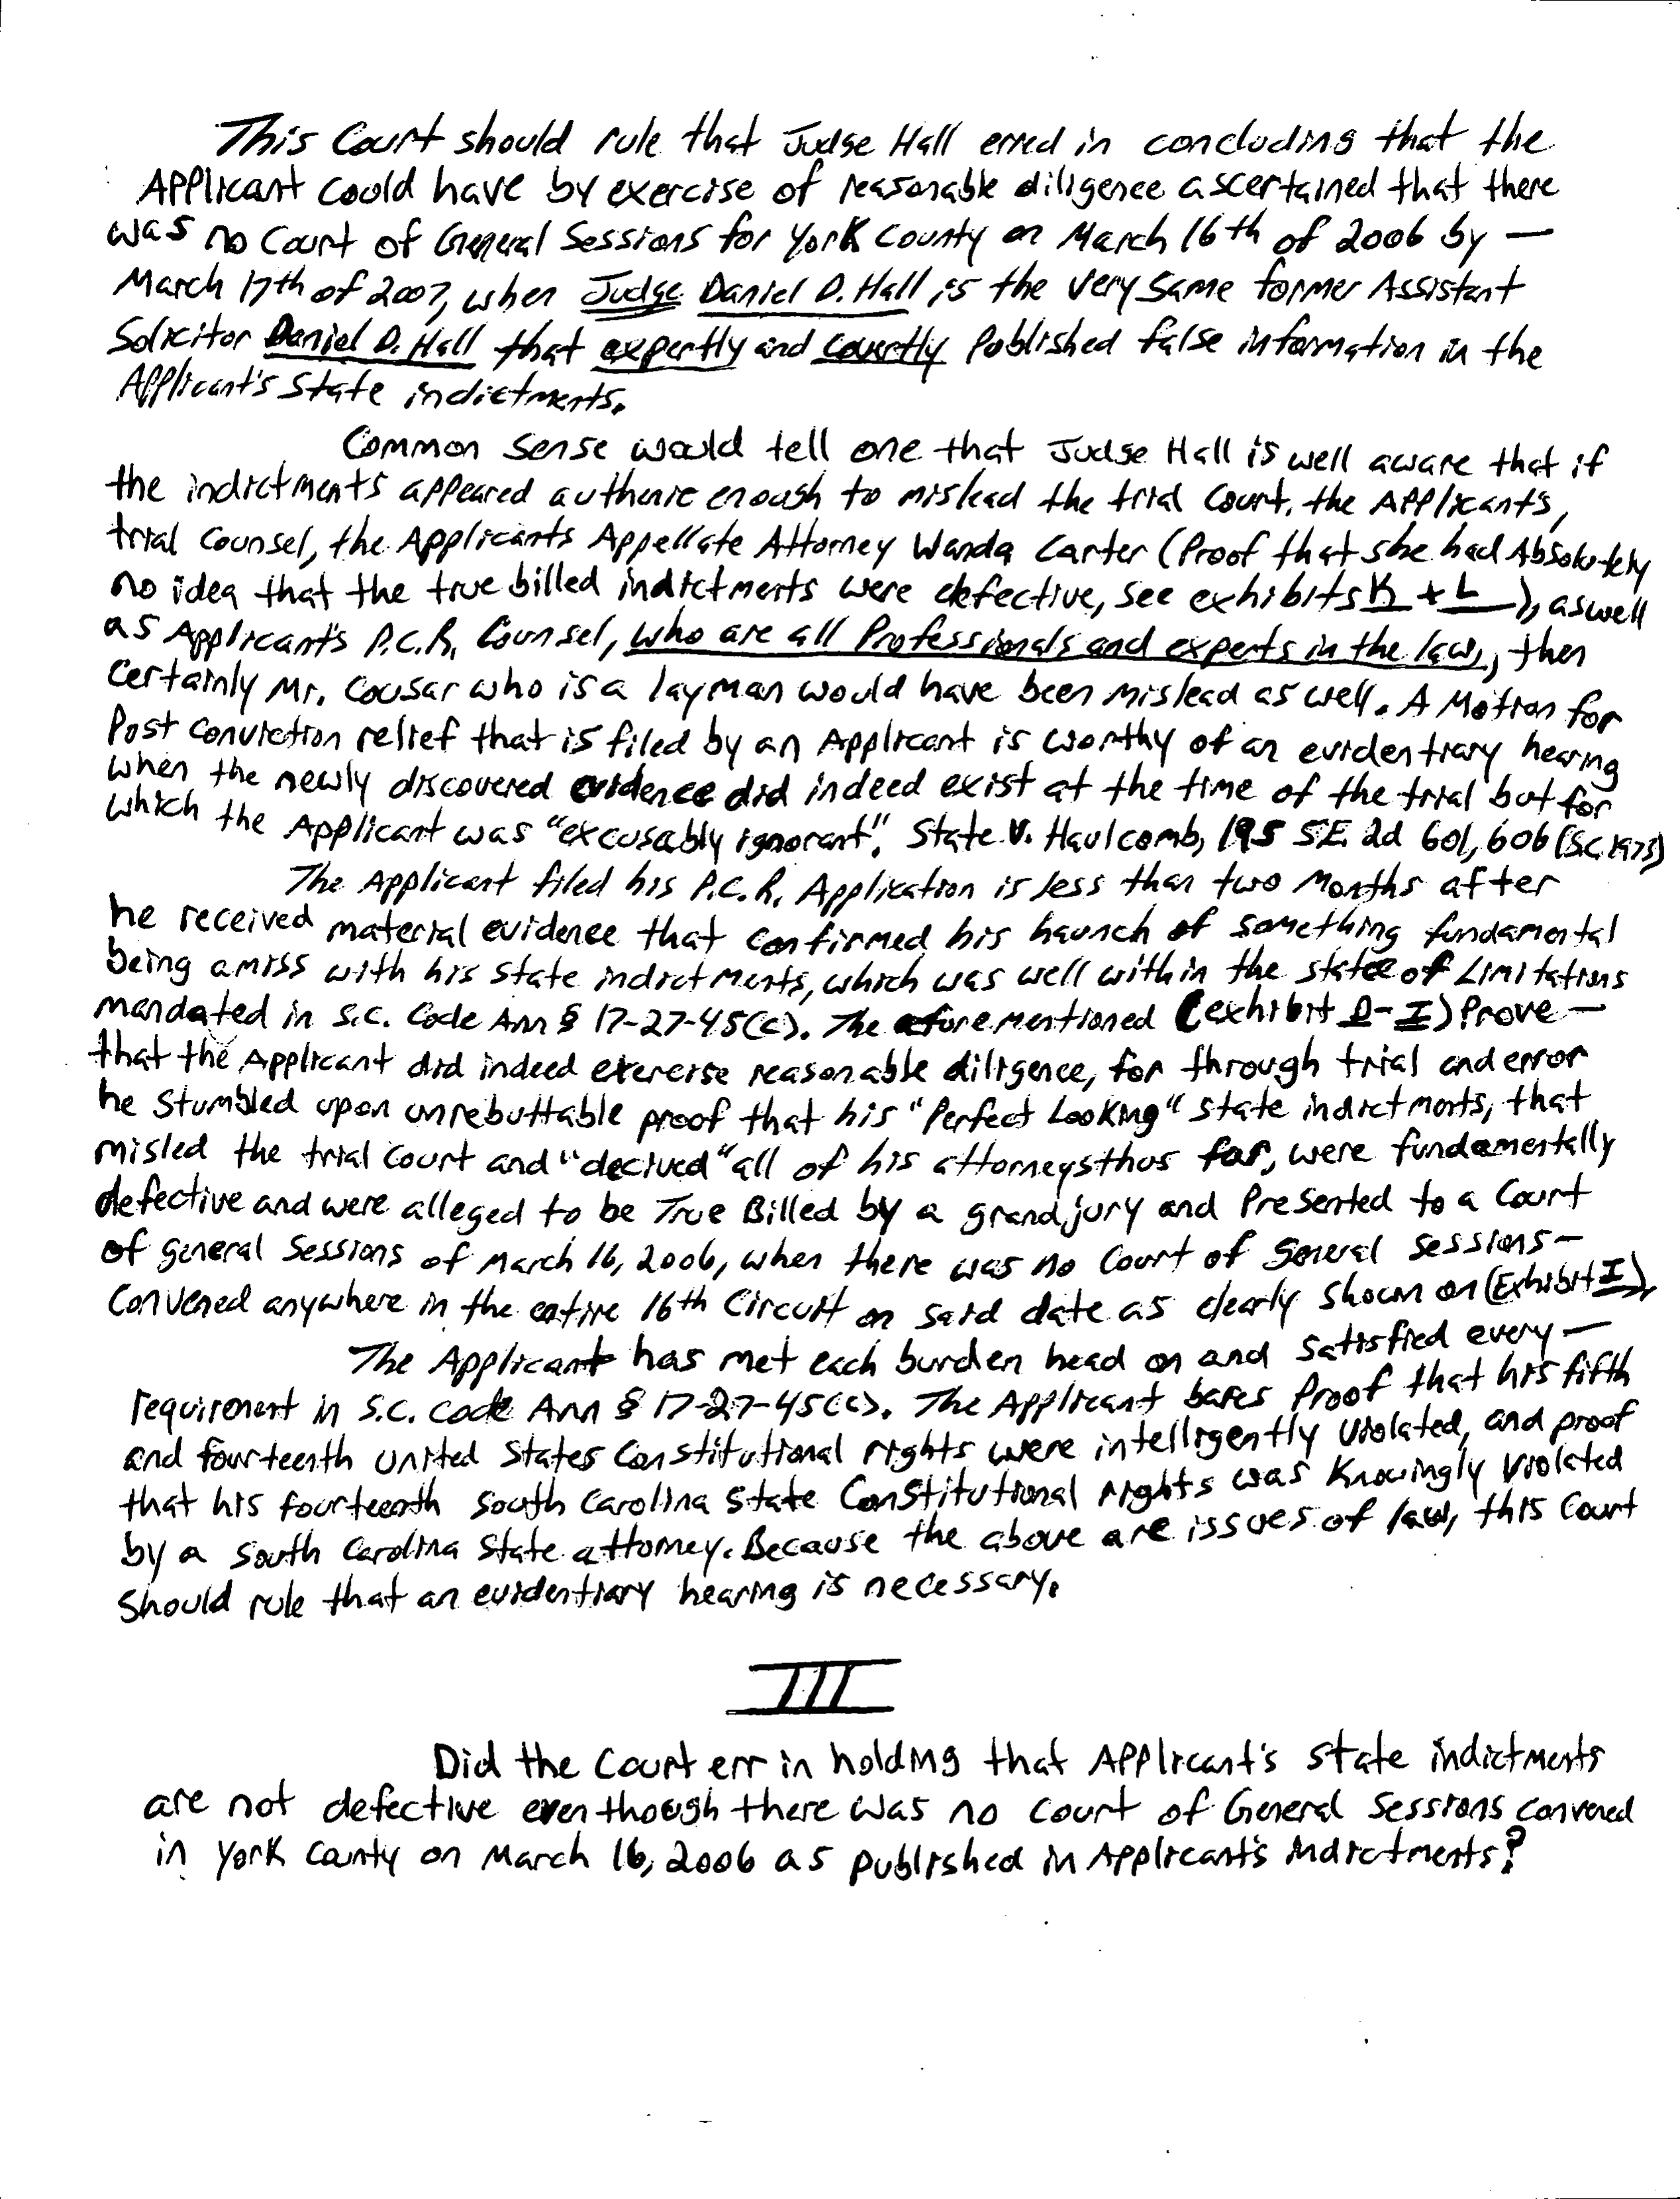 This Court should rule that Judge Hall erred in concluding that the
Applicant could have by exercise of reasonable diligence ascertained that there
was no Court of General Sessions for York County on March 16th of 2006 by —
March 17th of 2007, when Judge Daniel D. Hall, is the very same former Assistant
Solicitor Daniel D. Hall that expertly and covertly Published false information in the
Applicant's State indictments.
Common Sense would tell one that Judge Hall is well aware that if
the indictments appeared authenic enough to mislead the trial Court, the Applicant's,
trial Counsel, the Applicants Appellate Attorney Wanda Carter (Proof that she had Absolutely
no idea that the true billed indictments were defective, see exhibits K + L ), aswell
as Applicant's P.C.R. Counsel, who are all Professionals and experts in the law,, then
Certainly Mr. Cousar who is a layman would have been mislead as well. A Motion for
Post conviction relief that is filed by an Applicant is worthy of an evidentiary hearing
when the newly discovered evidence did indeed exist at the time of the trial but for
which the Applicant was "excusably ignorant". State v. Haulcomb, 195 SE. 2d 601, 606 (S.C. 1973)
The Applicant filed his P.C.R. Application is less than two months after
he received material evidence that confirmed his haunch of something fundamental
being amiss with his state indictments, which was well within the statee of Limitations
mandated in S.C. Code Ann § 17-27-45(c). The aforementioned (exhibit D-I) Prove —
that the Applicant did indeed exercise reasonable diligence, for through trial and error
he stumbled upon unrebuttable proof that his "Perfect Looking" state indictments, that
misled the trial Court and "decived" all of his attorneys thus far, were fundamentally
defective and were alleged to be True Billed by a grand jury and Presented to a Court
of general Sessions of March 16, 2006, when there was no Court of general sessions —
Convened anywhere in the entire 16th Circuit on said date as clearly shown on (Exhibit I),
The Applicant has met each burden head on and satisfied every —
requirement in S.C. Code Ann § 17-27-45(c). The Applicant bares Proof that his fifth
and fourteenth United States Constitutional rights were intelligently violated, and proof
that his fourteenth South Carolina State Constitutional rights was Knowingly violated
by a South Carolina State attorney. Because the above are issues of law, this Court
should rule that an evidentiary hearing is necessary.
III
Did the Court err in holding that Applicant's state indictments
are not defective even though there was no Court of General Sessions convened
in York County on March 16, 2006 as published in Applicant's indictments?